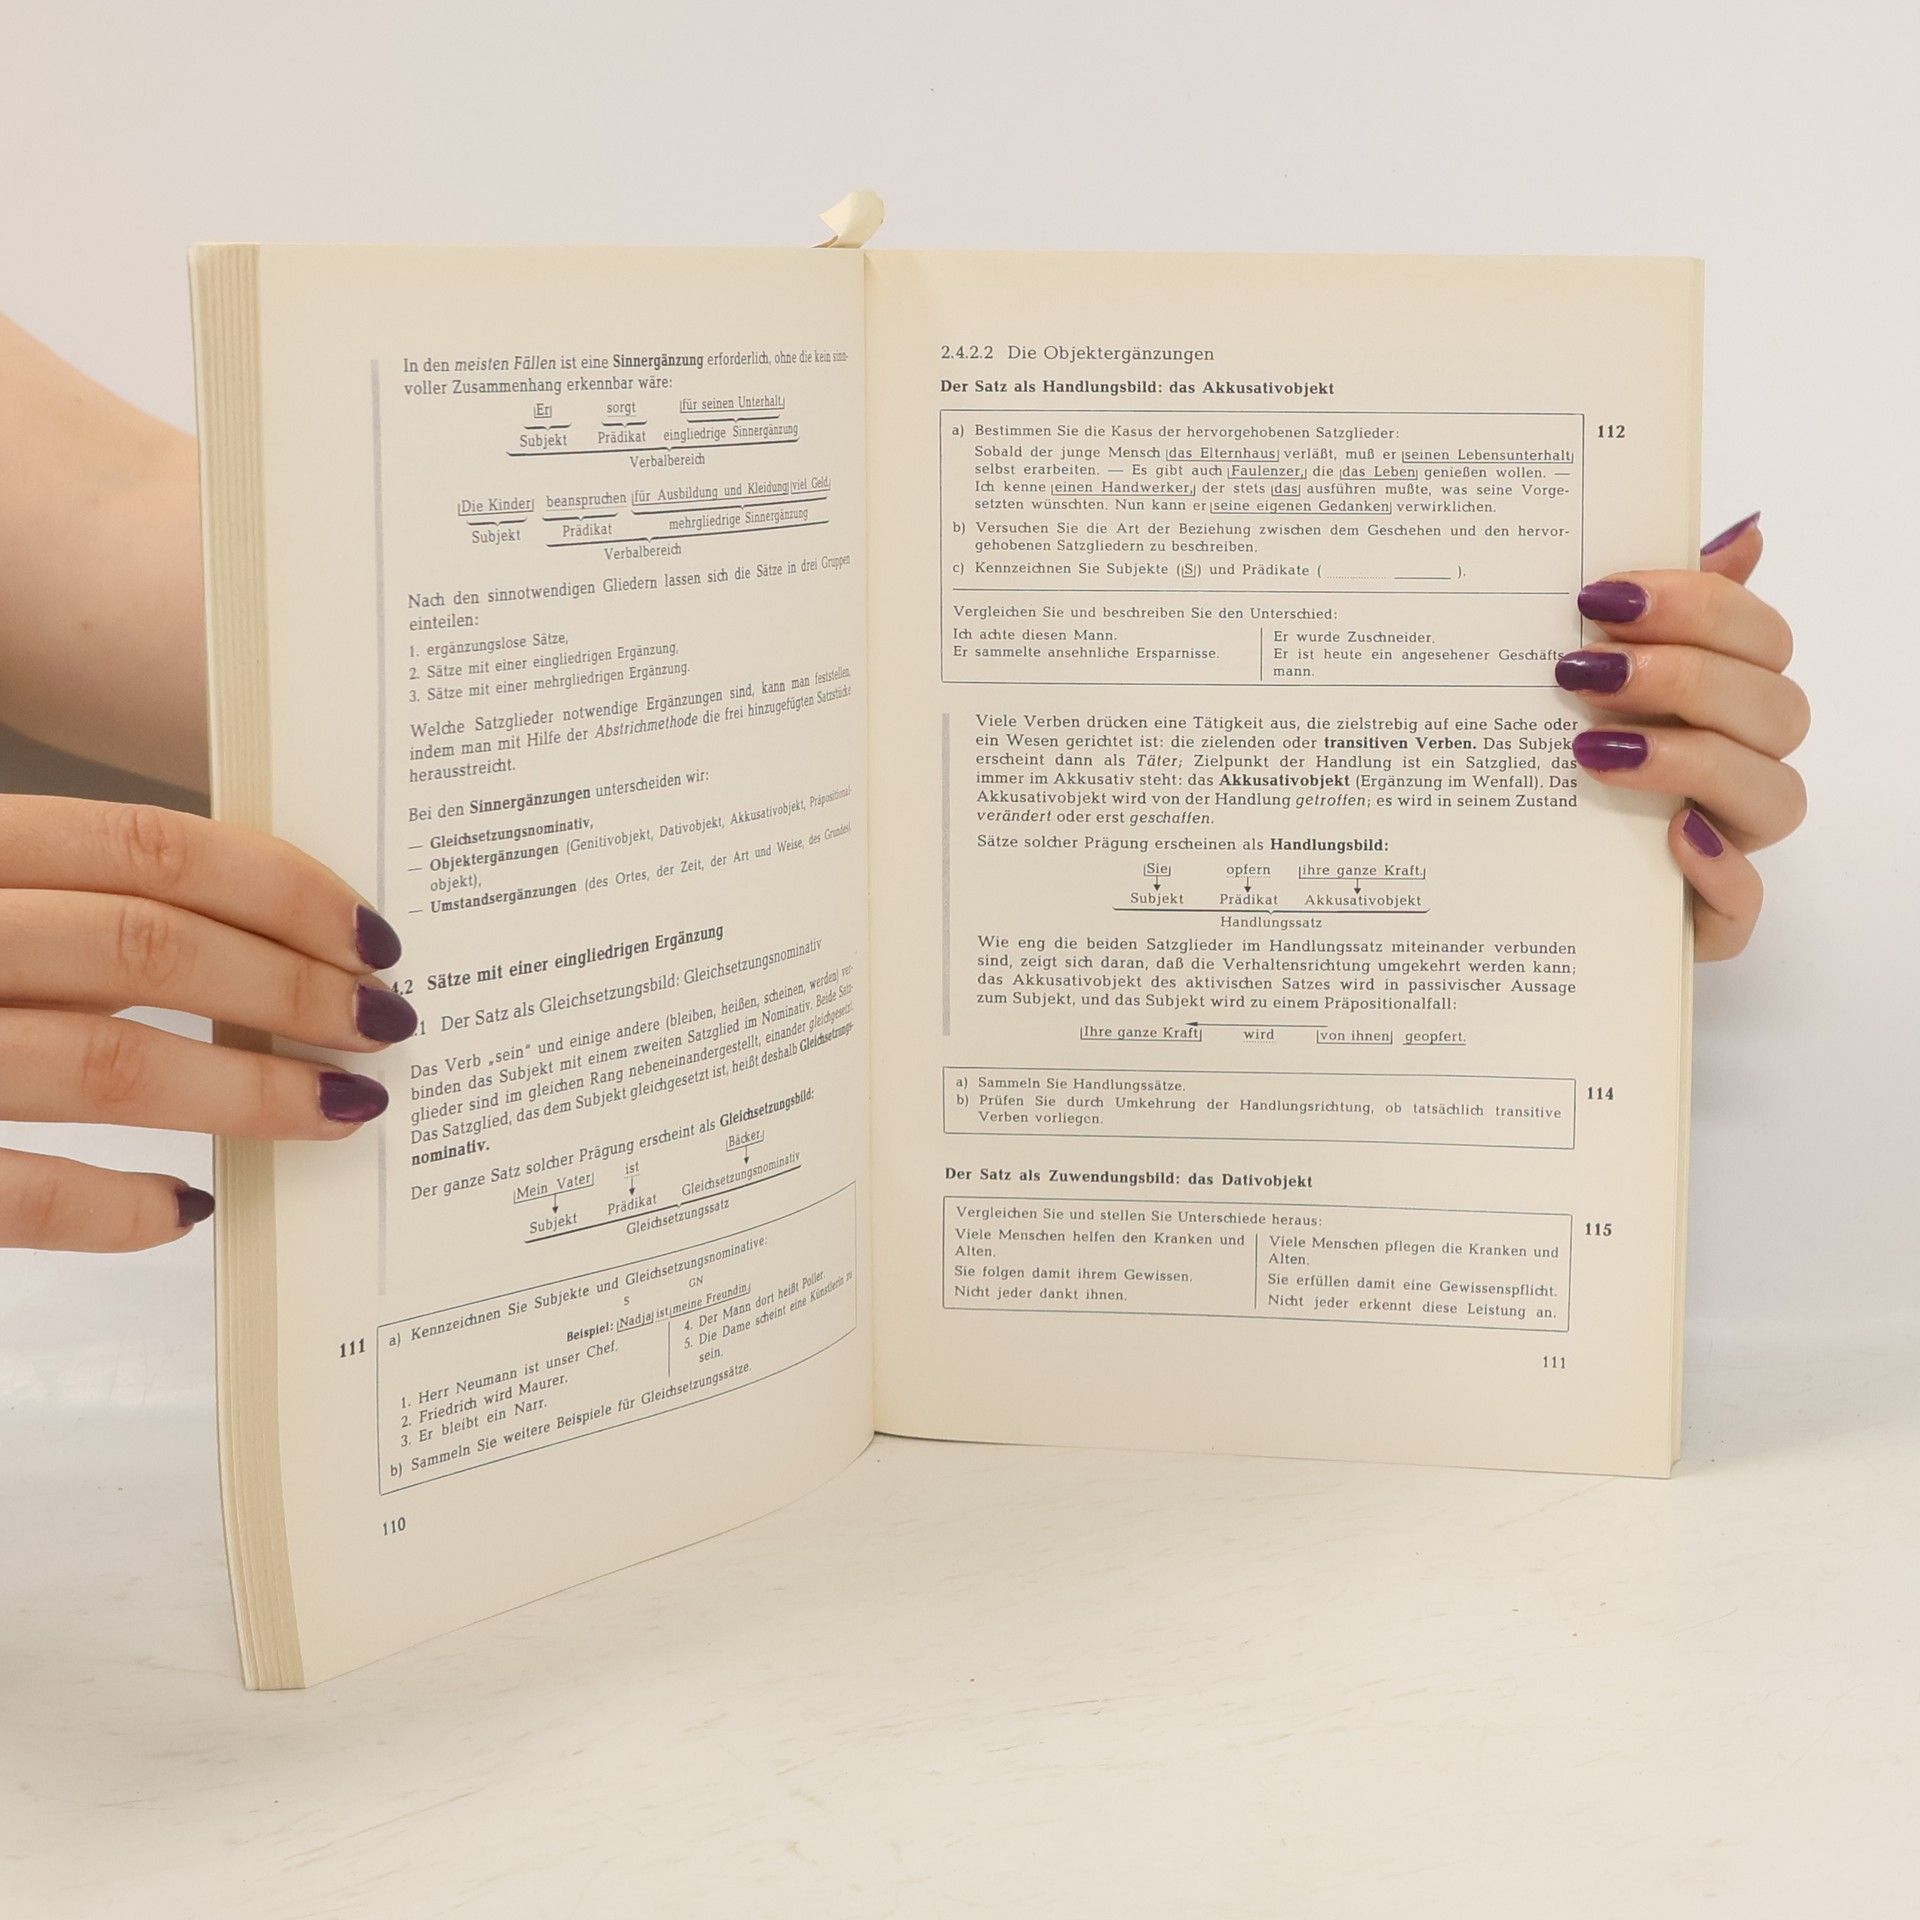 In den meisten Fällen ist eine Sinnergänzung erforderlich, ohne die kein sinn-
voller Zusammenhang erkennbar wäre:
Er sorgt für seinen Unterhalt
Subjekt Prädikat eingliedrige Sinnergänzung
Verbalbereich
Die Kinder beanspruchen für Ausbildung und Kleidung viel Geld
Subjekt Prädikat mehrgliedrige Sinnergänzung
Verbalbereich
Nach den sinnotwendigen Gliedern lassen sich die Sätze in drei Gruppen
einteilen:
1. ergänzungslose Sätze,
2. Sätze mit einer eingliedrigen Ergänzung,
3. Sätze mit einer mehrgliedrigen Ergänzung.
Welche Satzglieder notwendige Ergänzungen sind, kann man feststellen,
indem man mit Hilfe der Abstrichmethode die frei hinzugefügten Satzstücke
herausstreicht.
Bei den Sinnergänzungen unterscheiden wir:
— Gleichsetzungsnominativ,
— Objektergänzungen (Genitivobjekt, Dativobjekt, Akkusativobjekt, Präpositional-
objekt),
— Umstandsergänzungen (des Ortes, der Zeit, der Art und Weise, des Grundes).
4.2 Sätze mit einer eingliedrigen Ergänzung
.1 Der Satz als Gleichsetzungsbild: Gleichsetzungsnominativ
Das Verb „sein" und einige andere (bleiben, heißen, scheinen, werden) ver-
binden das Subjekt mit einem zweiten Satzglied im Nominativ. Beide Satz-
glieder sind im gleichen Rang nebeneinandergestellt, einander gleichgesetzt.
Das Satzglied, das dem Subjekt gleichgesetzt ist, heißt deshalb Gleichsetzungs-
nominativ.
Der ganze Satz solcher Prägung erscheint als Gleichsetzungsbild:
Mein Vater ist Bäcker.
Subjekt Prädikat Gleichsetzungsnominativ
Gleichsetzungssatz
111
a) Kennzeichnen Sie Subjekte und Gleichsetzungsnominative:
S GN
Beispiel: Nadja ist meine Freundin.
1. Herr Neumann ist unser Chef.
2. Friedrich wird Maurer.
3. Er bleibt ein Narr.
4. Der Mann dort heißt Poller.
5. Die Dame scheint eine Künstlerin zu
sein.
b) Sammeln Sie weitere Beispiele für Gleichsetzungssätze.
110
2.4.2.2 Die Objektergänzungen
Der Satz als Handlungsbild: das Akkusativobjekt
112
a) Bestimmen Sie die Kasus der hervorgehobenen Satzglieder:
Sobald der junge Mensch das Elternhaus verläßt, muß er seinen Lebensunterhalt
selbst erarbeiten. — Es gibt auch Faulenzer, die das Leben genießen wollen. —
Ich kenne einen Handwerker, der stets das ausführen mußte, was seine Vorge-
setzten wünschten. Nun kann er seine eigenen Gedanken verwirklichen.
b) Versuchen Sie die Art der Beziehung zwischen dem Geschehen und den hervor-
gehobenen Satzgliedern zu beschreiben.
c) Kennzeichnen Sie Subjekte (S) und Prädikate ( ........ ______ ).
Vergleichen Sie und beschreiben Sie den Unterschied:
Ich achte diesen Mann.
Er sammelte ansehnliche Ersparnisse.
Er wurde Zuschneider.
Er ist heute ein angesehener Geschäfts
mann.
Viele Verben drücken eine Tätigkeit aus, die zielstrebig auf eine Sache oder
ein Wesen gerichtet ist: die zielenden oder transitiven Verben. Das Subjek
erscheint dann als Täter; Zielpunkt der Handlung ist ein Satzglied, das
immer im Akkusativ steht: das Akkusativobjekt (Ergänzung im Wenfall). Das
Akkusativobjekt wird von der Handlung getroffen; es wird in seinem Zustand
verändert oder erst geschaffen.
Sätze solcher Prägung erscheinen als Handlungsbild:
Sie opfern ihre ganze Kraft.
Subjekt Prädikat Akkusativobjekt
Handlungssatz
Wie eng die beiden Satzglieder im Handlungssatz miteinander verbunden
sind, zeigt sich daran, daß die Verhaltensrichtung umgekehrt werden kann;
das Akkusativobjekt des aktivischen Satzes wird in passivischer Aussage
zum Subjekt, und das Subjekt wird zu einem Präpositionalfall:
Ihre ganze Kraft wird von ihnen geopfert.
114
a) Sammeln Sie Handlungssätze.
b) Prüfen Sie durch Umkehrung der Handlungsrichtung, ob tatsächlich transitive
Verben vorliegen.
Der Satz als Zuwendungsbild: das Dativobjekt
115
Vergleichen Sie und stellen Sie Unterschiede heraus:
Viele Menschen helfen den Kranken und
Alten.
Sie folgen damit ihrem Gewissen.
Nicht jeder dankt ihnen.
Viele Menschen pflegen die Kranken und
Alten.
Sie erfüllen damit eine Gewissenspflicht.
Nicht jeder erkennt diese Leistung an.
111